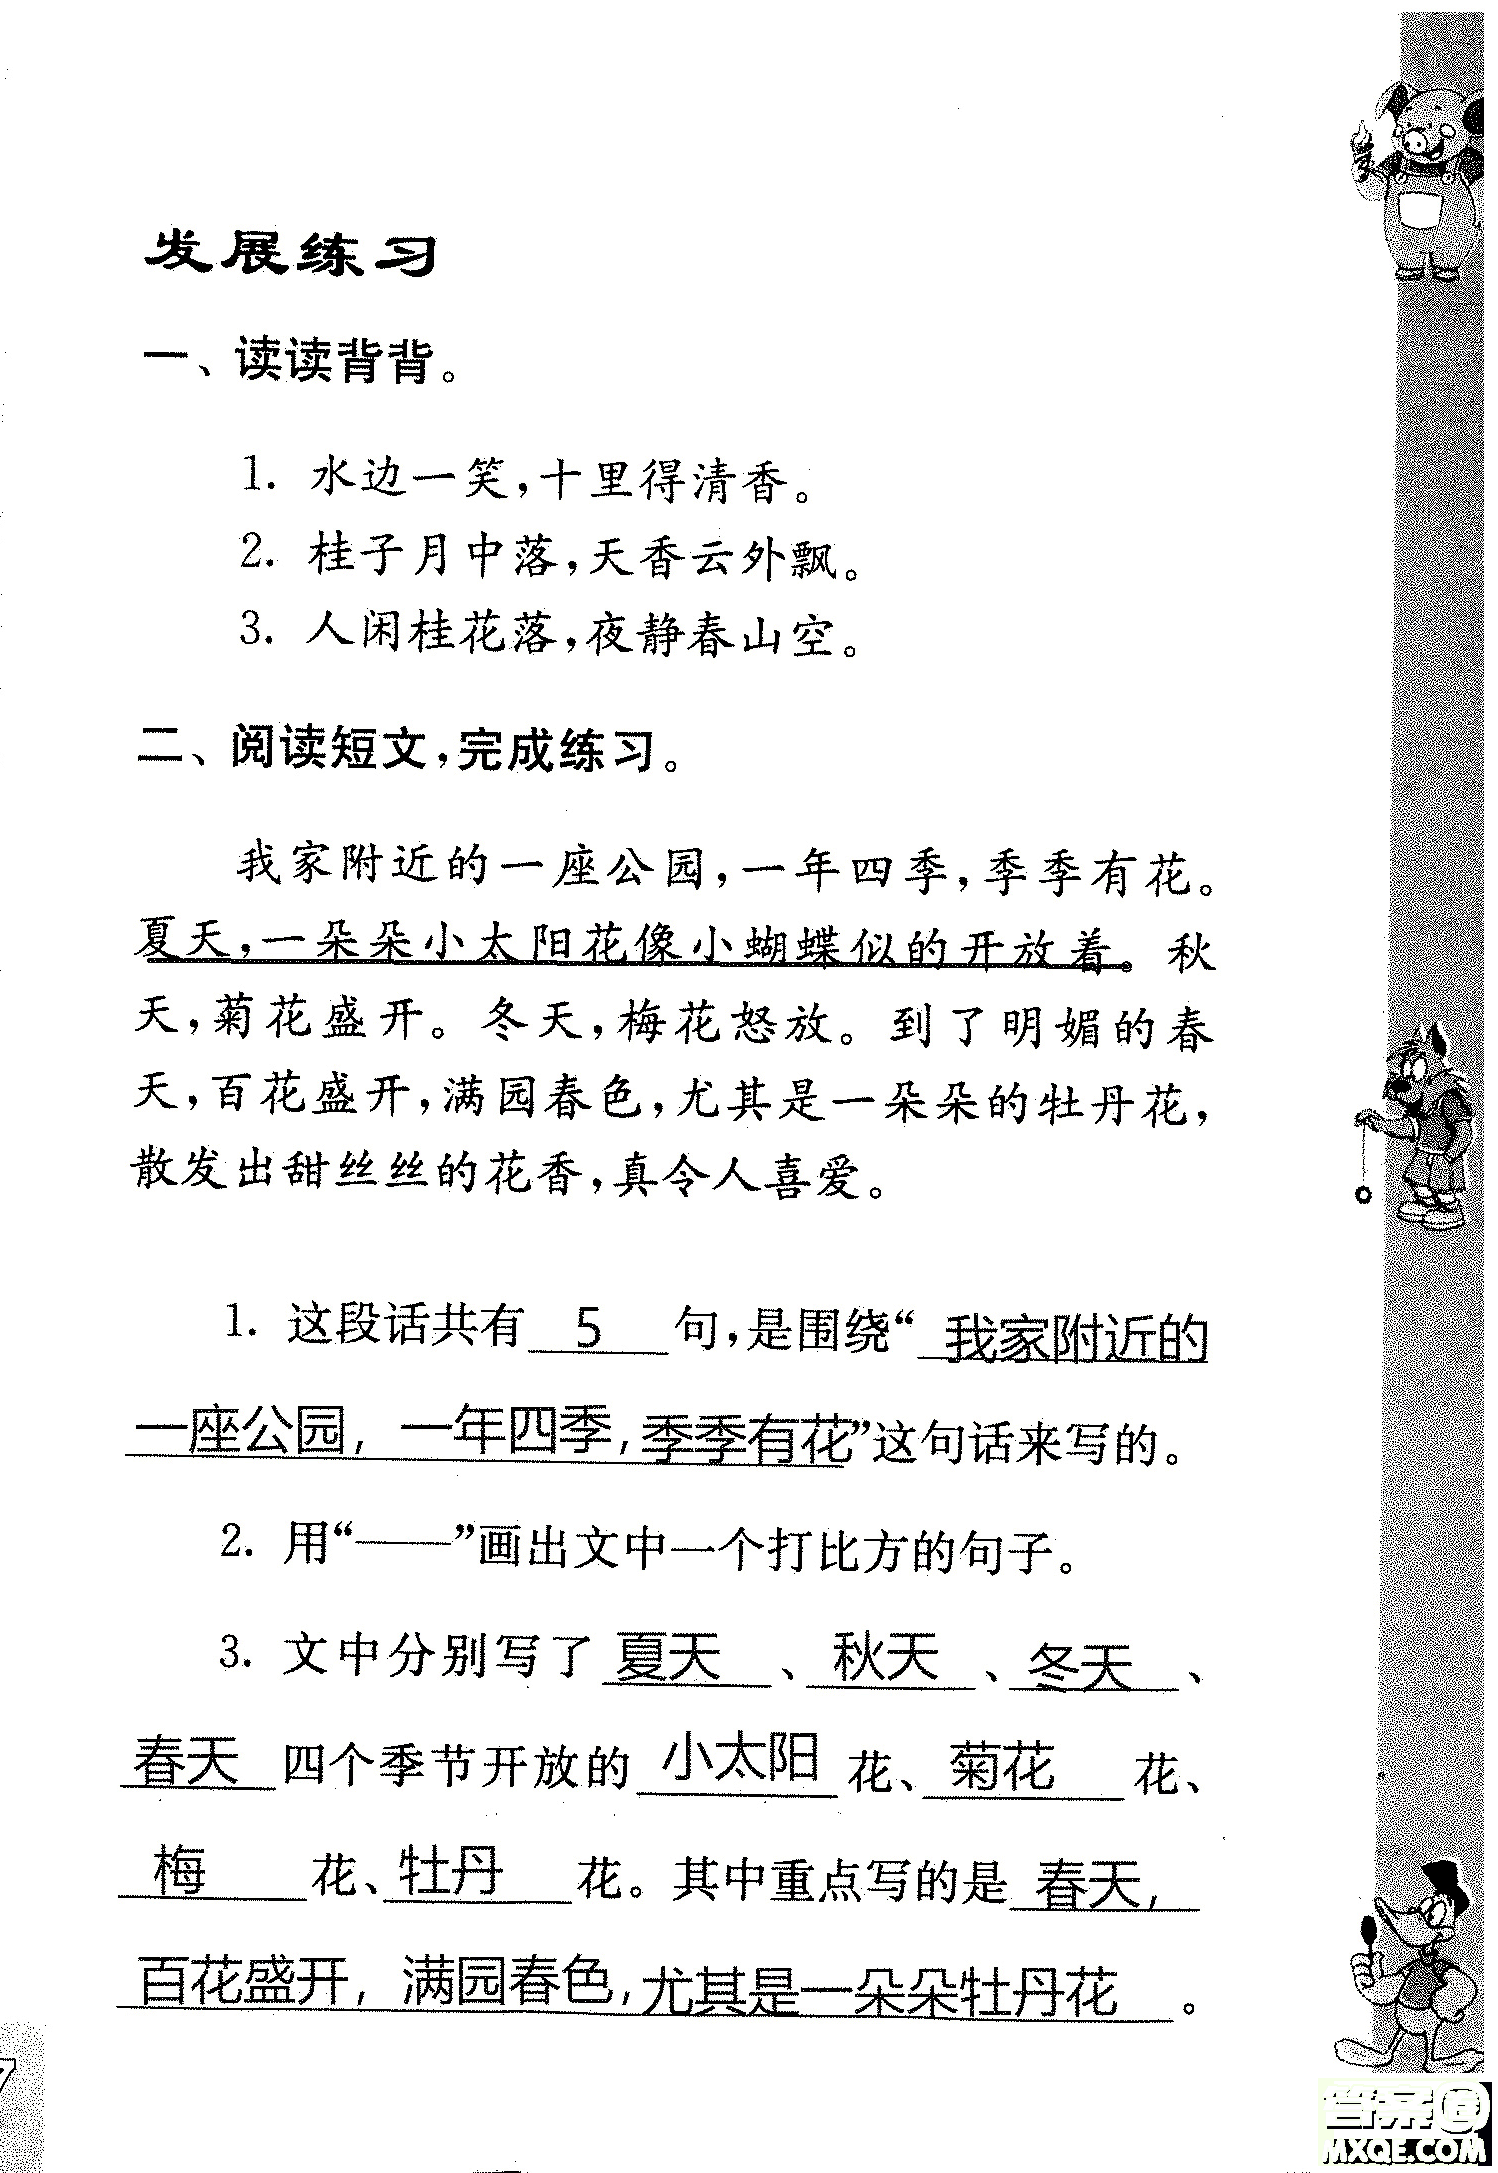 发展练习
一、读读背背。
1. 水边一笑,十里得清香。
2. 桂子月中落,天香云外飘。
3. 人闲桂花落,夜静春山空。
二、阅读短文,完成练习。
我家附近的一座公园,一年四季,季季有花。
夏天,一朵朵小太阳花像小蝴蝶似的开放着。秋
天,菊花盛开。冬天,梅花怒放。到了明媚的春
天,百花盛开,满园春色,尤其是一朵朵的牡丹花,
散发出甜丝丝的花香,真令人喜爱。
1. 这段话共有 5 句,是围绕“我家附近的
一座公园, 一年四季,季季有花”这句话来写的。
2. 用“——”画出文中一个打比方的句子。
3. 文中分别写了 夏天 、 秋天 、 冬天 、
春天 四个季节开放的 小太阳 花、 菊花 花、
梅 花、 牡丹 花。其中重点写的是 春天,
百花盛开, 满园春色,尤其是一朵朵牡丹花 。
7
答案圈
MXQE.COM